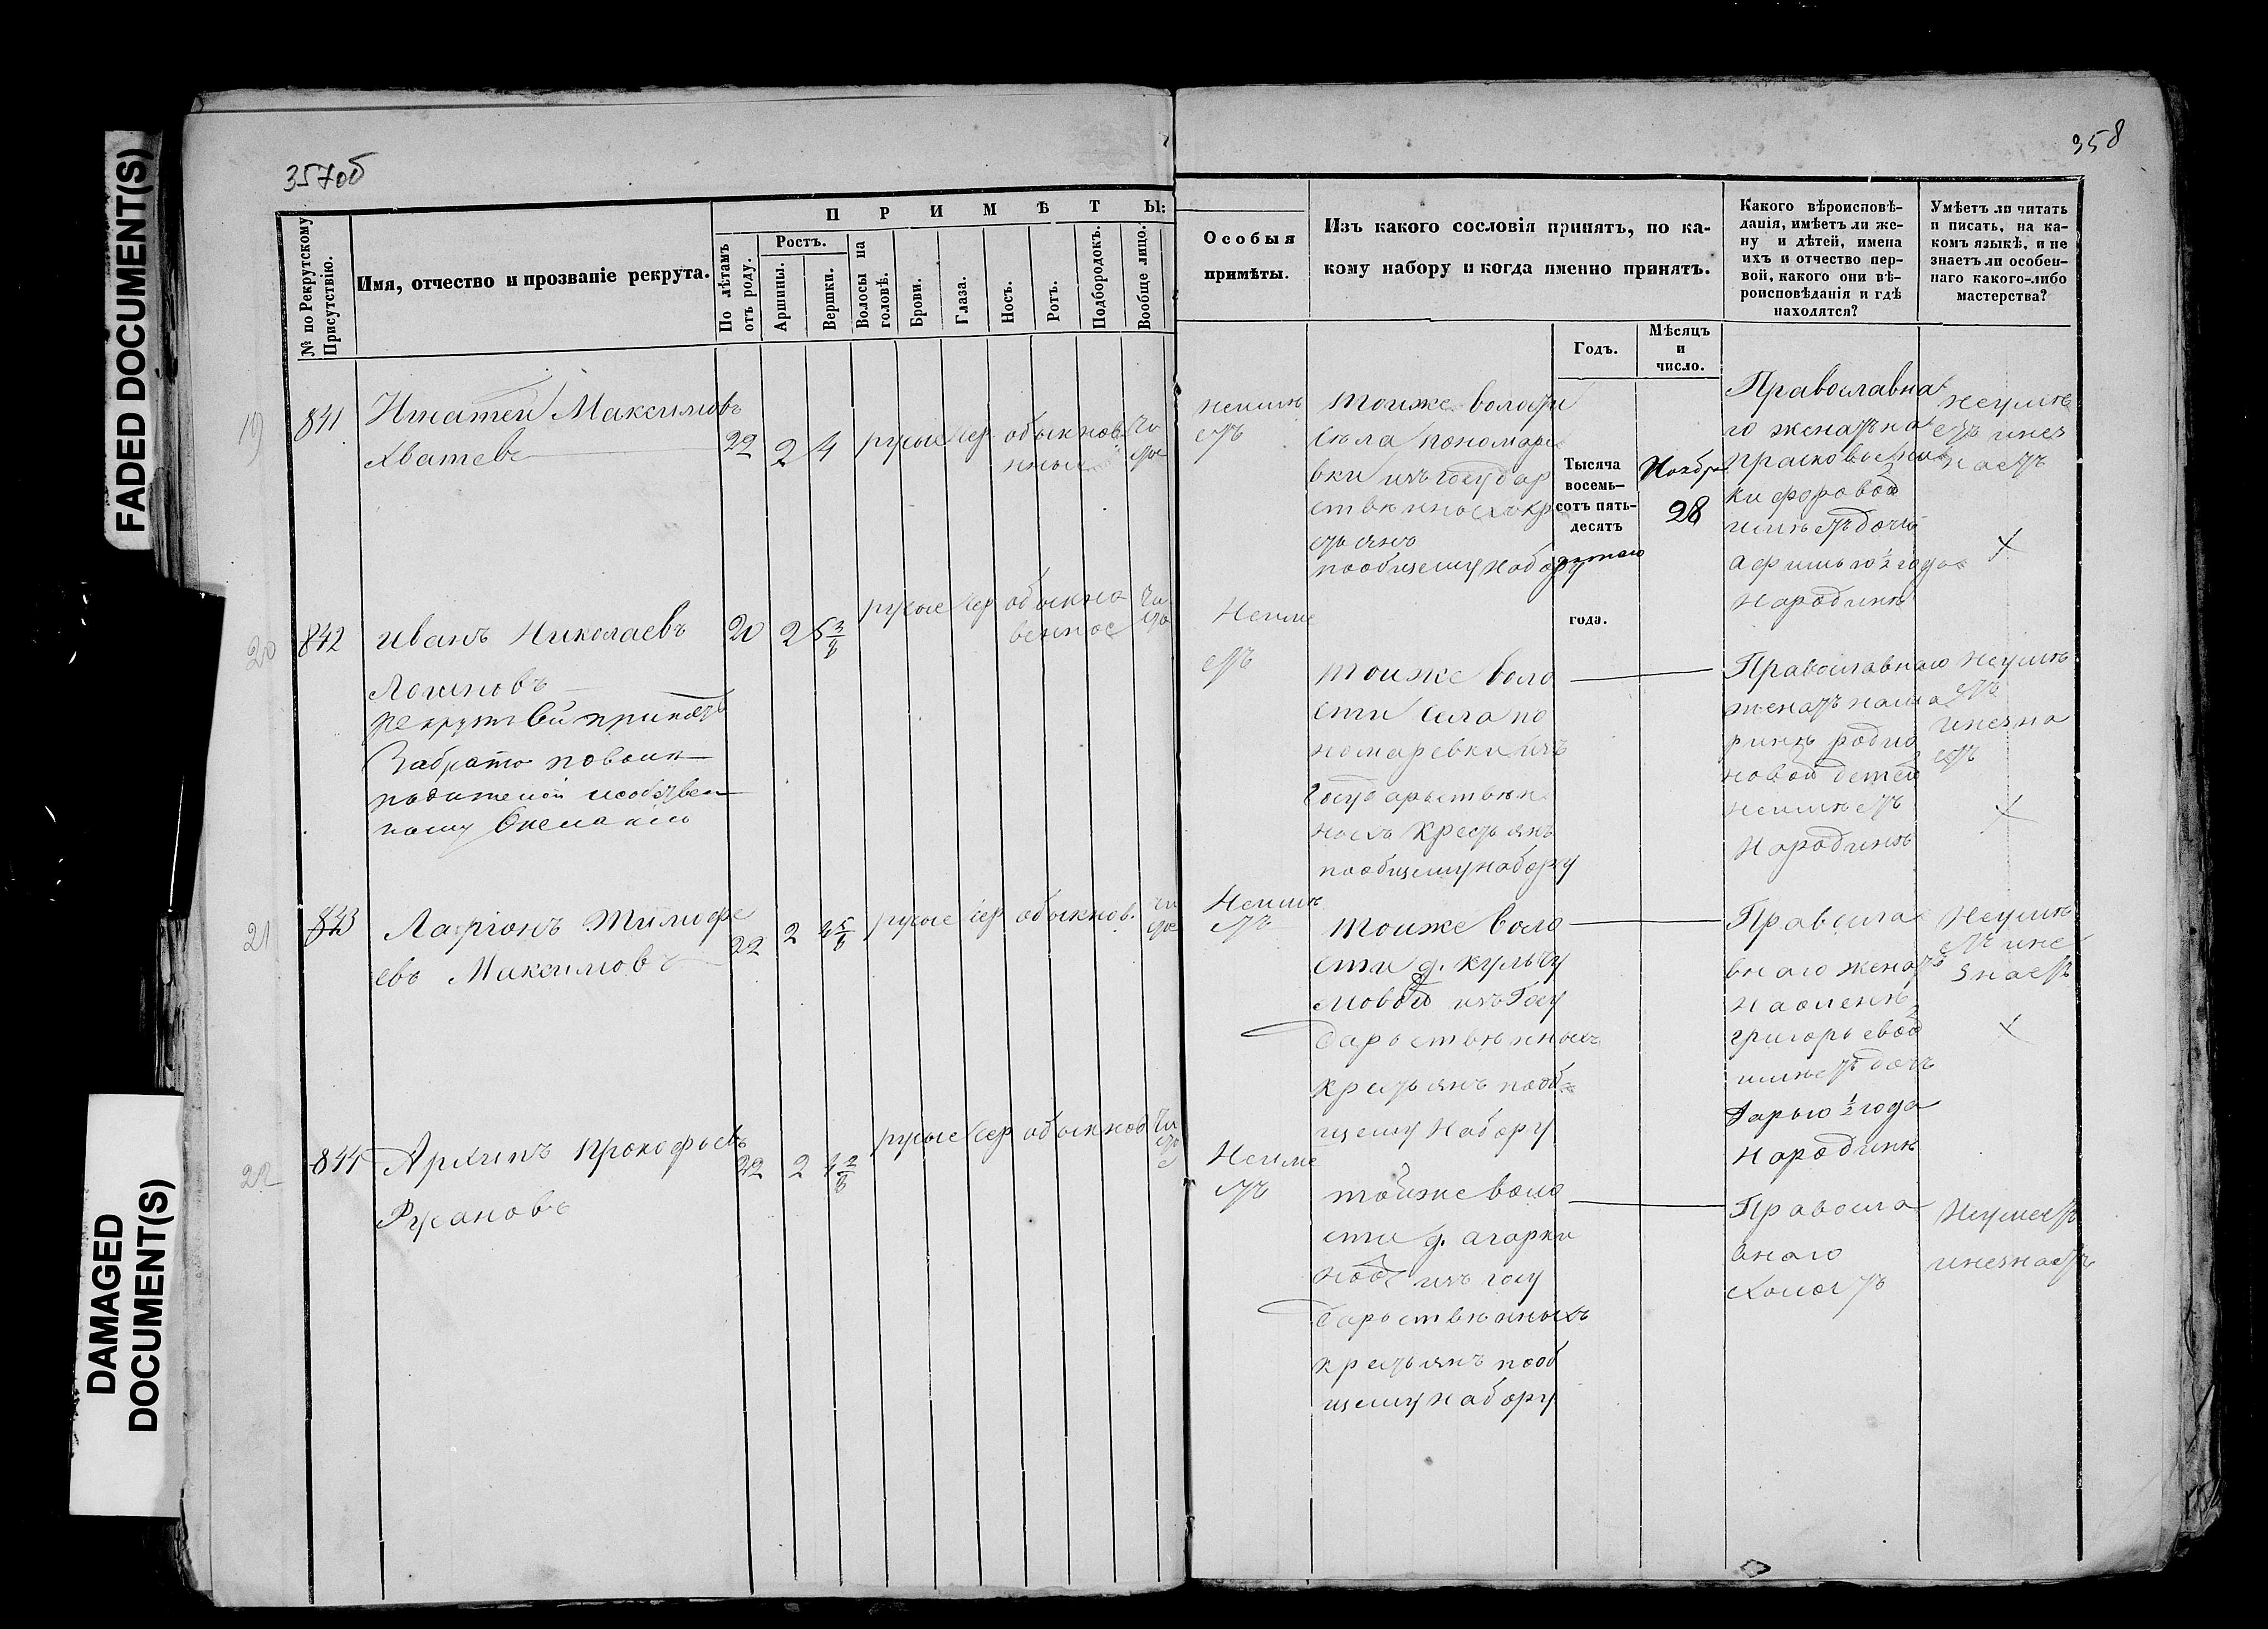 FADED DOCUMENT(S)
DAMAGED
DOCUMENT(S)
357об
358
№ по Рекрутскому
Присутствію.
Имя, отчество и прозваніе рекрута.
П Р И М Ѣ Т Ы:
По лѣтамъ
отъ роду.
Ростъ.
Аршины.
Вершки.
Волосы на
головѣ.
Брови.
Глаза.
Носъ.
Ротъ.
Подбородокъ.
Вообще лицо.
Особыя
примѣты.
Изъ какого сословія принятъ, по ка-
кому набору и когда именно принятъ.
Годъ.
Мѣсяцъ
и
число.
Какого вѣроисповѣ-
данія, имѣетъ ли же-
ну и дѣтей, имена
ихъ и отчество пер-
вой, какого они вѣ-
роисповѣданія и гдѣ
находятся?
Умѣетъ ли читать
и писать, на ка-
комъ языкѣ, и не
знаетъ ли особен-
наго какого-либо
мастерства?
19
841
Игнатей Максимовъ
Хватевъ
22
2
4
русые
сер
обыкнов
нные
чи
стое
неимѣ
етъ
тойже волости
села пономаре
вки изъ государ
ствѣнныхъ кр
стьянъ
пообщему набору
Тысяча
восемь-
сотъ пять-
десятъ
года.
Ноября
28
Православна
го женатъ на
прасковье Ни
кифоровой
имѣетъ дочь
афимью ½ года
Народинѣ
неумѣ
етъ инез
наетъ
×
20
842
иванъ Николаевъ
Логиновъ
рекрутъ сей принятъ
За брата
20
2
5 3/8
русые
сер
обыкно
венное
чи
сто
Неиме
етъ
тойже воло
сти села по
номаревки изъ
Государствѣн
ныхъ крестьянъ
пообщему набору
Православнаго
женатъ нама
ринѣ родио
новой детей
неимѣетъ
Народинѣ
Неумѣ
етъ
инезна
етъ
×
21
843
Ларіонъ Тимофе
евъ Максимовъ
22
2
4 5/8
русые
сер
обыкнов.
чи
стое
Неимѣ
етъ
тойже воло
сти д. кульчу
мовой изъ Госу
дарствѣнныхъ
крестьянъ пооб
щему Набору
Правосла
внаго женатъ
На
григорьевой
имѣетъ дочь
Дарью ½ года
Народинѣ
Неумѣ
етъ ине
знаетъ
×
22
844
Архипъ Прокофьевъ
Русановъ
22
2
4 2/8
русые
сер
обыкнов
чи
сто
е
Неиме
етъ
тойже воло
сти д. агарки
ной изъ госу
дарствѣнныхъ
крестьянъ пооб
щему набору
Правосла
внаго
холостъ
Неумеетъ
инезнаетъ